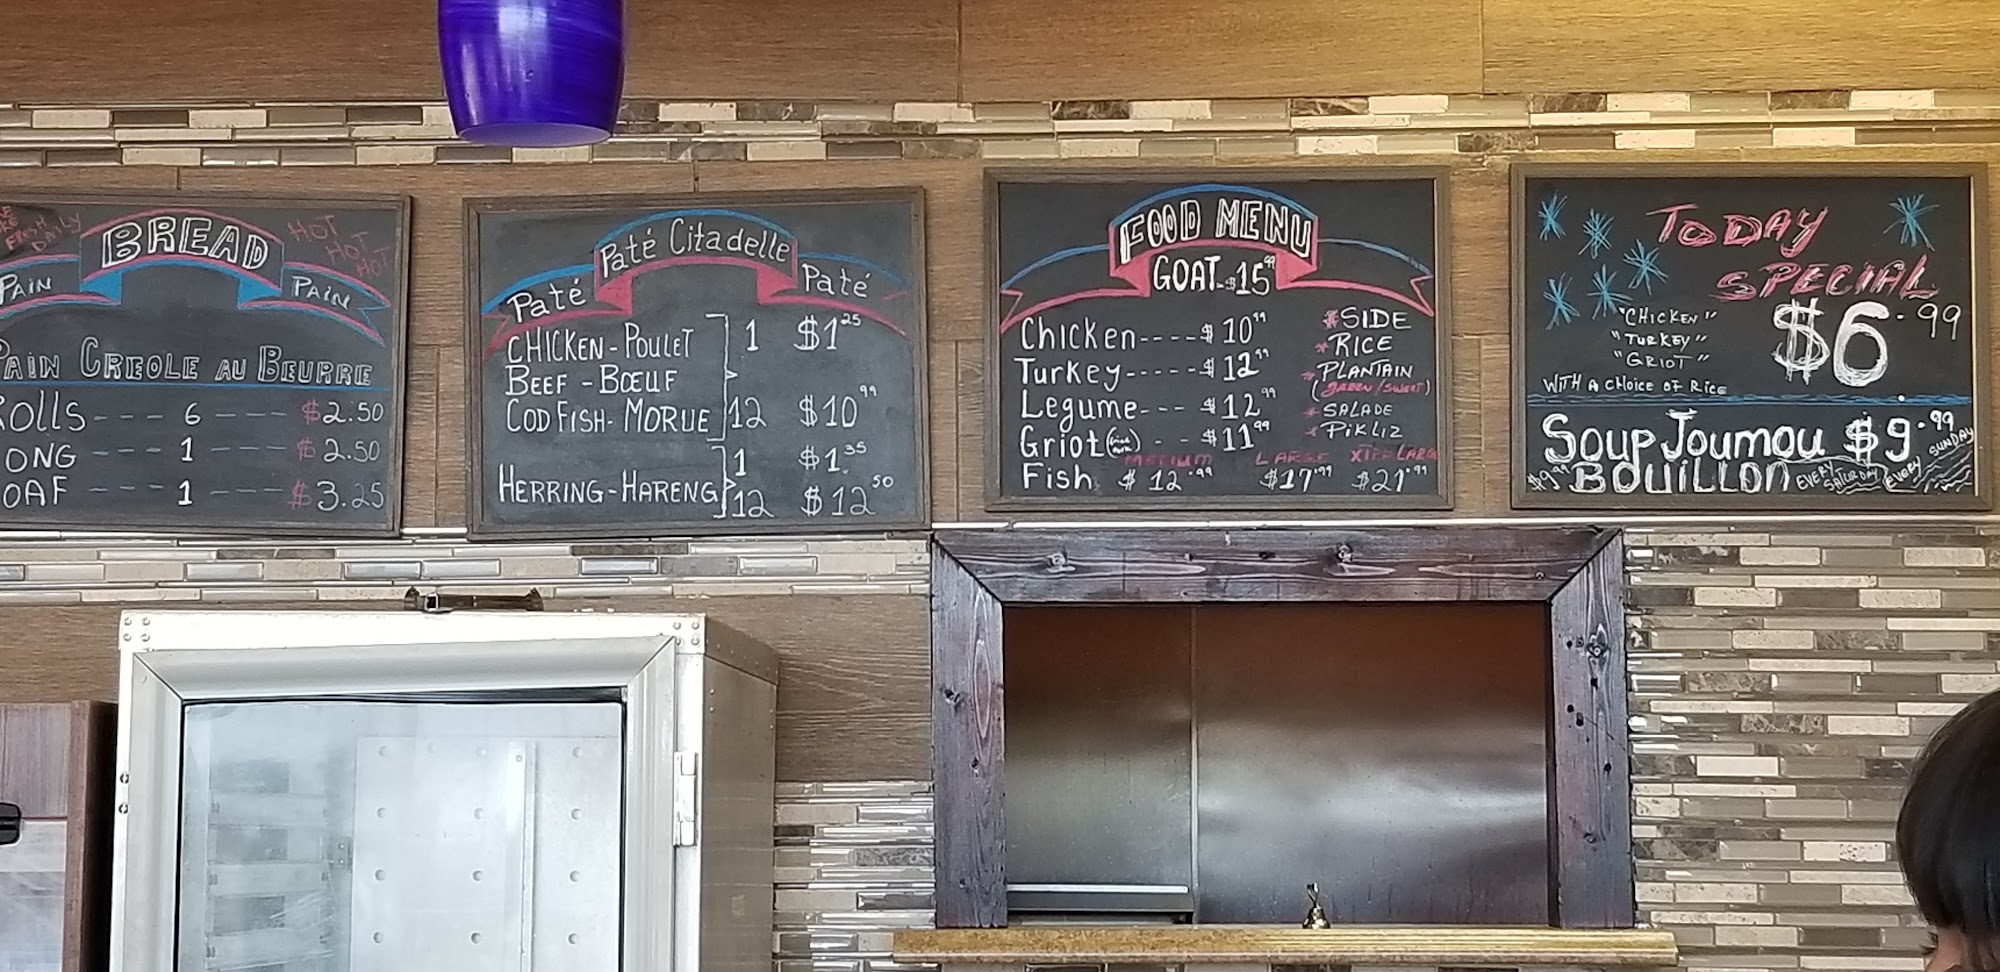 FRESH
DAILY
HOT
HOT
HOT
BREAD
PAIN PAIN
PAIN CREOLE AU BEURRE
ROLLS --- 6 --- $2.50
ONG --- 1 --- $2.50
OAF --- 1 --- $3.25
Paté Citadelle
Paté Paté
CHICKEN - POULET 1 $1.25
BEEF - BŒUF
COD FISH - MORUE 12 $10.99
1 $1.35
HERRING - HARENG
12 $12.50
FOOD MENU
GOAT - $15.99
Chicken ---- $10.99
Turkey ----- $12.99
Legume --- $12.99
Griot - - $11.99
MEDIUM LARGE XTRA LARG
Fish $12.99 $17.99 $21.99
*SIDE
*RICE
*PLANTAIN
(GREEN/SWEET)
*SALADE
*PiKLiZ
TODAY
SPECIAL
"CHICKEN"
"TURKEY"
"GRIOT"
$6.99
WITH A CHOICE OF RICE
SOUP JOUMOU $9.99
EVERY SUNDAY
$9.99 BOUILLON EVERY SATURDAY